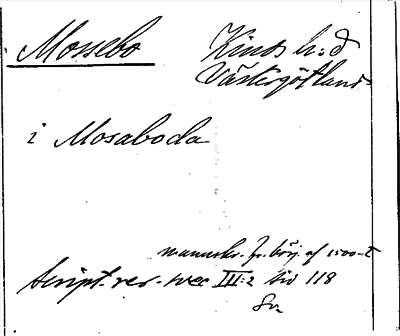 Mossebo Kinds h:d
Västergötland
i Mosaboda
manuskr. fr. börj. af 1500-t
Script. rer. svec III:2 sid 118